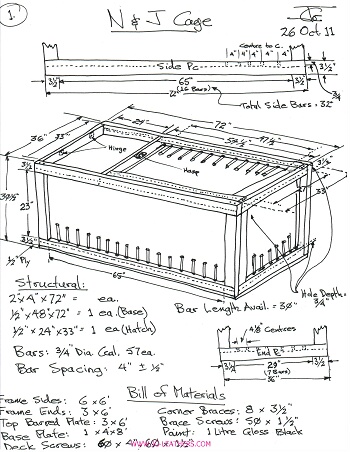 1
N & J Cage
26 Oct 11
Centre to C.
4" 4" 4" 4" 4"
Side Pc
3½" 65" 3½"
3½"
72" (16 Bars)
3/4
Total Side Bars = 32"
36" 33"
24"
72"
Hinge
Hasp
33"
3½"
30½"
23"
3½"
½" Ply
65"
Hole Depth =
3/4"
Structural:
2"x4"x72" = ea.
½"x48"x72" = 1 ea. (Base)
½"x24"x33" = 1 ea (Hatch)
Bar Length Avail. = 30"
Bars: 3/4" Dia Gal. 57 ea.
Bar Spacing: 4" ± ½"
4⅛" Centres
End Pc
3½" 29" 3½"
(7 Bars)
36"
Bill of Materials
Frame Sides: 6 x 6'
Frame Ends: 3 x 6'
Top Barred Plate: 3 x 6'
Base Plate: 1 x 4 x 8'
Deck Screws: 60 x 4" 60 x 1½"
Corner Braces: 8 x 3½"
Brace Screws: 50 x 1"
Paint: 1 Litre Gloss Black